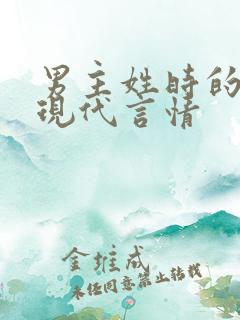 男主姓時的
現代言情
金堆成
未经同意禁止转载